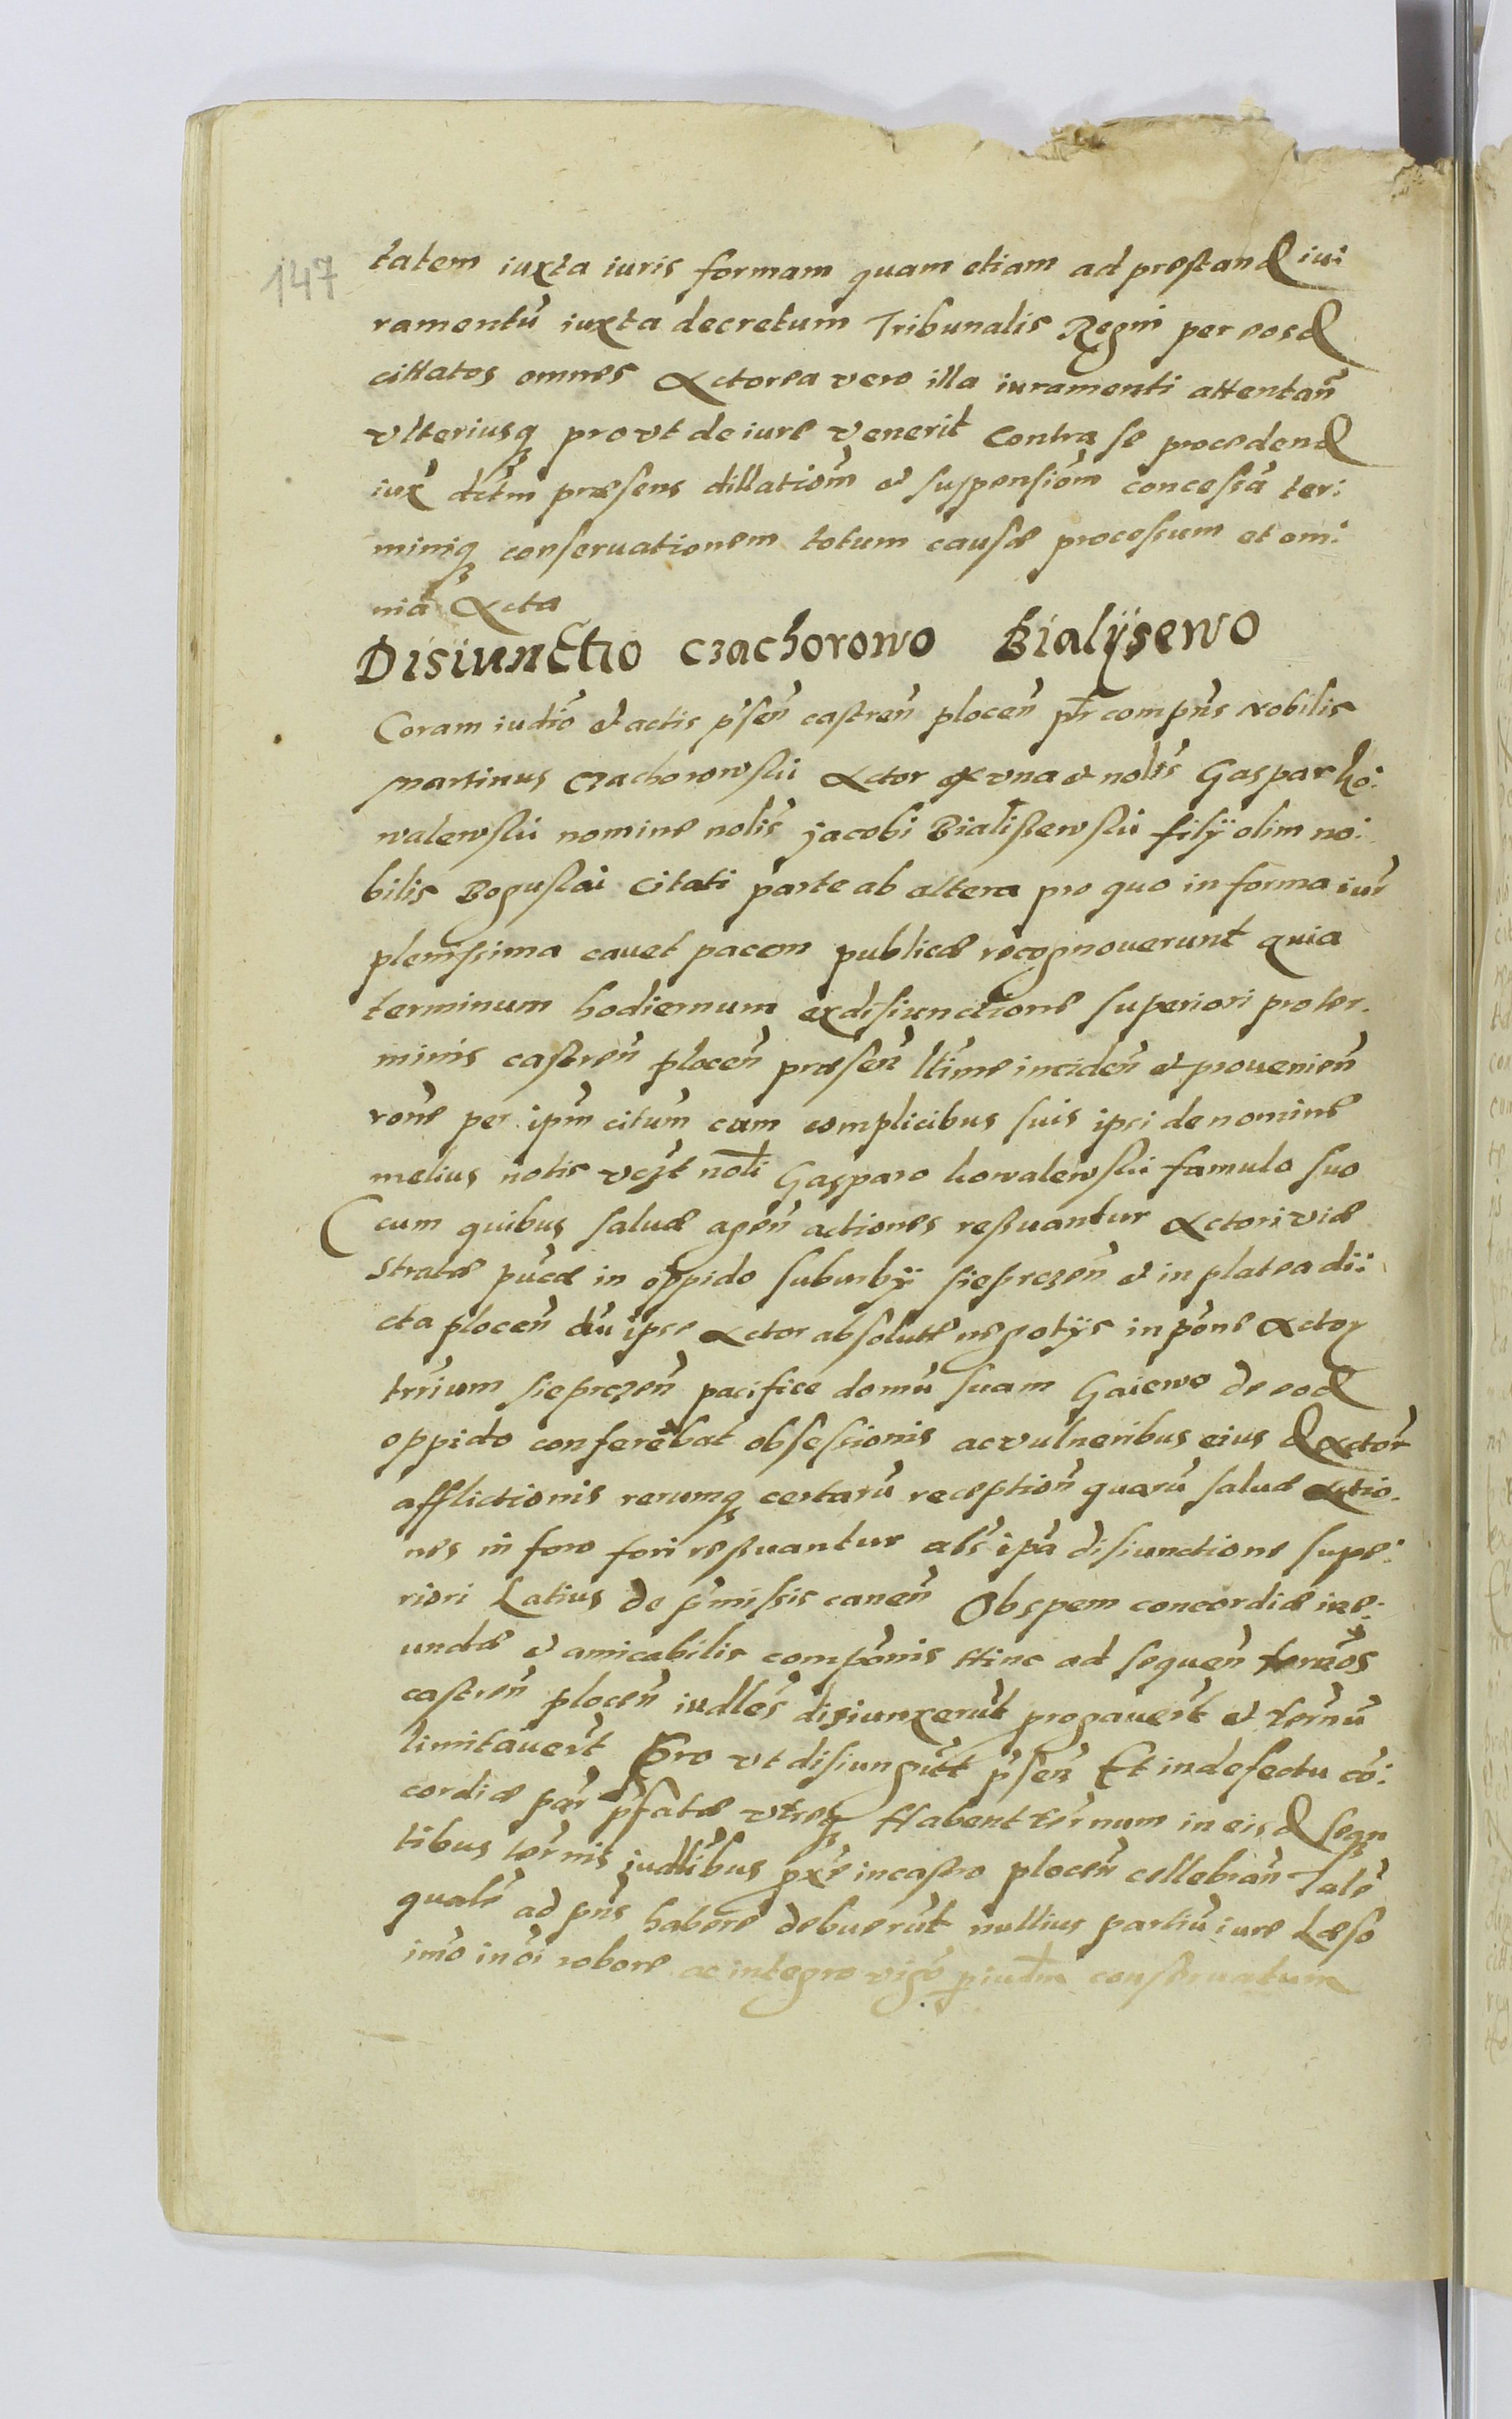 147
tatem iuxta iuris formam quam etiam ad prestand iu:
ramentū iuxta decretum Tribunalis Regni per eosd
cittatos omnes Actorea vero illa iuramenti attentan̄
vlteriusq pro vt de iure venerit contra se procedend
iux dctm præsens dillatiom̄ et suspensiom̄ concessā ter:
miniq conseruationem totum causæ processum et om:
nia Acta
Disiunctio Czachorowo Bialÿsewo
Coram iudio et actis p̄sen̄ castren̄ plocen̄ ptr comp̄ns Nobilis
Martinus Czachorowskii Actor ex vna et nolis Gaspar Ko:
walewskii nomine nolis Jacobi Bialissewskii filÿ olim no:
bilis Boguslai Citati parte ab altera pro quo in forma iur
plenissima cauet pacem publicæ recognouerunt quia
terminum hodiernum ex disiunctione superiori pro ter.
minis castren̄ plocen̄ præsen̄ ltime inciden̄ et prouenien̄
rone per ipm̄ citum̄ cum complicibus suis ipsi de nomine
melius notis vczt noli Gasparo kowalewskii famulo suo
cum quibus saluæ agen̄ actiones reseruantur Actori viæ
Stratæ pucæ in oppido suburbÿ sieprczen̄ et in platea di:
cta plocen̄ dū ipse Actor absolutis negotÿs in pōne Actor
trrium sieprczen̄ pacifice domū suam Gaiewo de eod
oppido conferebat obsessionis ac vulneribus eius d Actor
afflictionis rerumq certarū reception̄ quarū saluæ Actio.
nes in foro fori reseruantur als ipa disiunctione supe:
riori Latius de p̄missis canen̄ Ob spem concordiæ ine:
undæ et amicabilis compōnis Hinc ad sequen̄ termos
castren̄ plocen̄ iudles disiunxerūt progauert et termū
limitauert Pro vt disiungūt p̄sen̄ Et in defectu cō:
cordiæ par p̄fatæ vtreq Habent termum in eisd sequ
tibus termis iudlibus pxe in castro plocen̄ cellebran̄ Tale
quale ad p̄ns habere debuerūt nullius partiū iure Læso
imo in oi robore ac integro vigo p iudm conseruatum